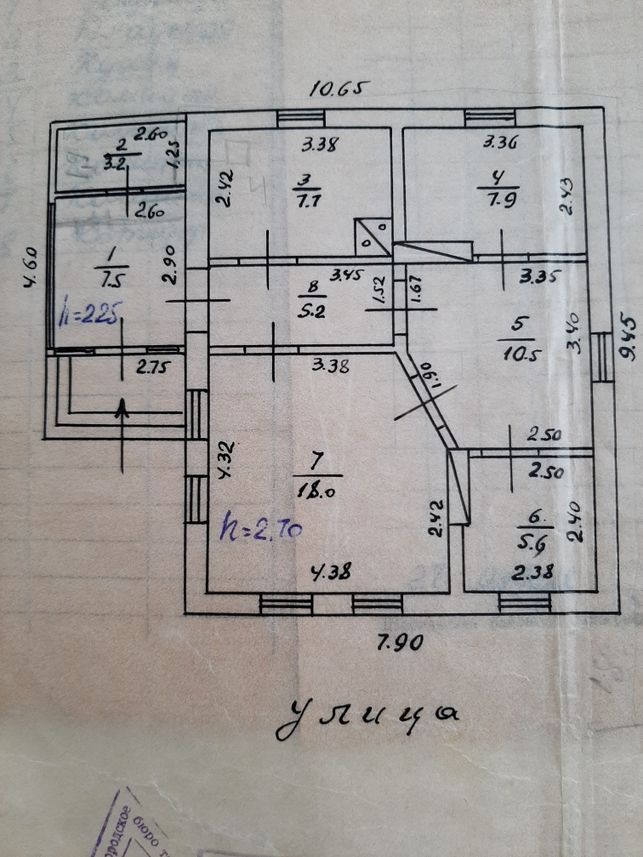 10.65
2.60
3.38
3.36
2
3.2
1.25
2.42
3
7.7
4
7.9
2.43
2.60
1
7.5
2.90
4.60
3.45
8
5.2
1.52
1.67
3.35
h=2.25
5
10.5
3.40
9.45
2.75
3.38
1.90
4.32
7
18.0
2.50
2.50
h=2.70
2.42
6.
5.6
2.40
4.38
2.38
7.90
улица
бюро